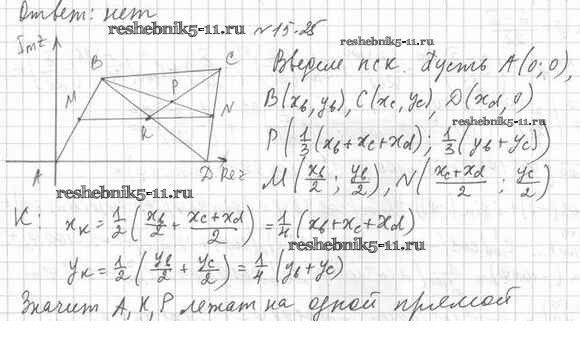 Ответ: нет
reshebnik5-11.ru
№15.25
reshebnik5-11.ru
Imz
B
C
P
M
N
K
A
D
Rez
Введем пск. Пусть A(0; 0),
B(xb, yb), C(xc, yc), D(xd, 0)
reshebnik5-11.ru
P(1/3(xb+xc+xd); 1/3(yb+yc))
M(xb/2; yb/2), N((xc+xd)/2; yc/2)
reshebnik5-11.ru
K: xк = 1/2(xb/2 + (xc+xd)/2) = 1/4(xb+xc+xd)
reshebnik5-11.ru
yк = 1/2(yb/2 + yc/2) = 1/4(yb+yc)
Значит A, K, P лежат на одной прямой
reshebnik5-11.ru